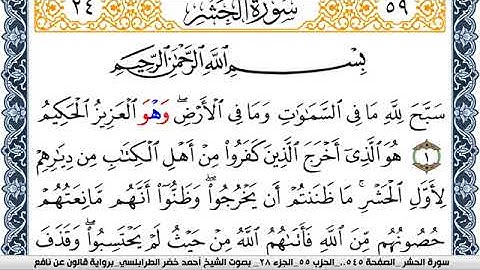 ٢٤ سُورَةُ الحَشْرِ ٥٩
بِسْمِ اللَّهِ الرَّحْمَٰنِ الرَّحِيمِ
سَبَّحَ لِلَّهِ مَا فِي السَّمَٰوَٰتِ وَمَا فِي الْأَرْضِ وَهْوَ الْعَزِيزُ الْحَكِيمُ
١ هُوَ الَّذِي أَخْرَجَ الَّذِينَ كَفَرُوا مِنْ أَهْلِ الْكِتَٰبِ مِن دِيَٰرِهِمْ
لِأَوَّلِ الْحَشْرِ مَا ظَنَنتُمْ أَن يَخْرُجُوا وَظَنُّوا أَنَّهُم مَّانِعَتُهُمْ
حُصُونُهُم مِّنَ اللَّهِ فَأَتَىٰهُمُ اللَّهُ مِنْ حَيْثُ لَمْ يَحْتَسِبُوا وَقَذَفَ
سورة الحشر_ الصفحة ٥٤٥..الحزب ٥٥_الجزء ٢٨_ بصوت الشيخ أحمد خضر الطرابلسي_برواية قالون عن نافع